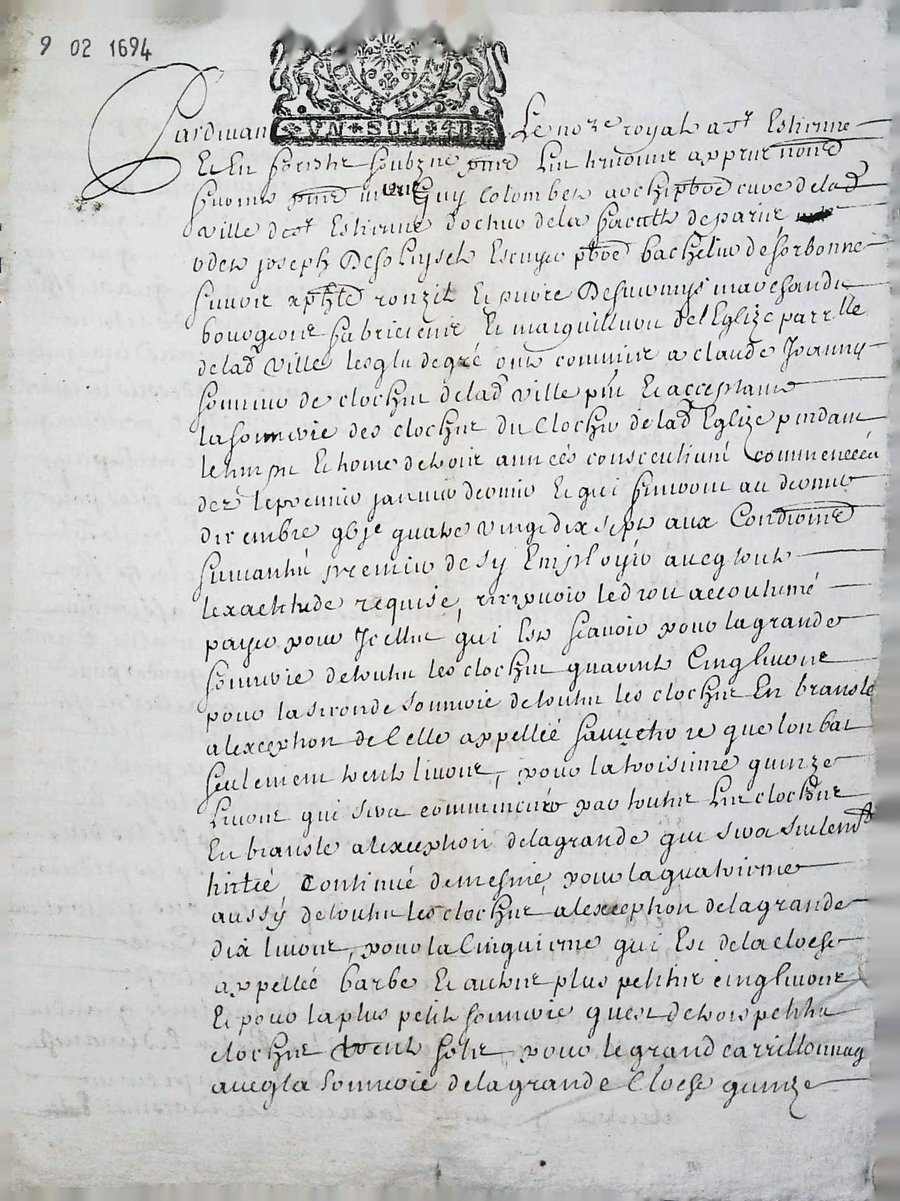 9 02 1694
VN · SOL · 4D
Pardevan Le no.re royal a St Estienne
Et En
Guy Colombet pbre curé de lad
ville de St Estienne docteur de la faculté de paris
Joseph Escuyer pbre bachelier de Sorbonne
ronzil Et marchands
bourgeois Et marguilliers de l'Eglize parr.lle
de lad ville lesqls de gré ont commis a claude Joanny
sonneur de cloches de lad ville Et acceptant
la sonnerie des cloches du clocher de lad Eglize pendant
le temps Et terme de trois années consecutives commencées
dez le premier janvier dernier Et qui finiront au dernier
decembre gbje quatre vingt dix sept aux Conditions
suivantes premier de sy Employer avecq toute
lexactitude requise, le droit accoutumé
payer pour Icelles qui Est scavoir pour la grande
sonnerie de toutes les cloches quarante Cinq livres
pour la seconde sonnerie de toutes les cloches En bransle
a lexception de Celle appellée sauveterre que lon bat
seulement trente livres, pour la troisieme quinze
Livres qui sera commencée par toutes Les cloches
En bransle a lexception de la grande qui sera seulemt
tintée Continué de mesme, pour la quatrieme
aussy de toutes les cloches a lexception de la grande
dix livres, pour la Cinquieme qui Est de la cloche
appellée barbe Et autres plus petites cinq livres
Et pour la plus petite sonnerie quest de trois petites
cloches trente sols pour le grand carrillonnag
avecq la sonnerie de la grande Cloche quinze